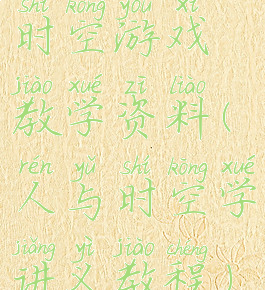 shí kōng yóu xì
时空游戏
jiào xué zī liào
教学资料(
rén yǔ shí kōng xué
人与时空学
jiǎng yì jiào chéng
讲义教程)